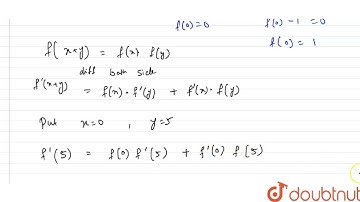 f(0)=0 f(0)-1=0
f(0)=1
f(x+y) = f(x) f(y)
diff both side
f'(x+y) = f(x)·f'(y) + f'(x)·f(y)
Put x=0, y=5
f'(5) = f(0) f'(5) + f'(0) f(5)
doubtnut